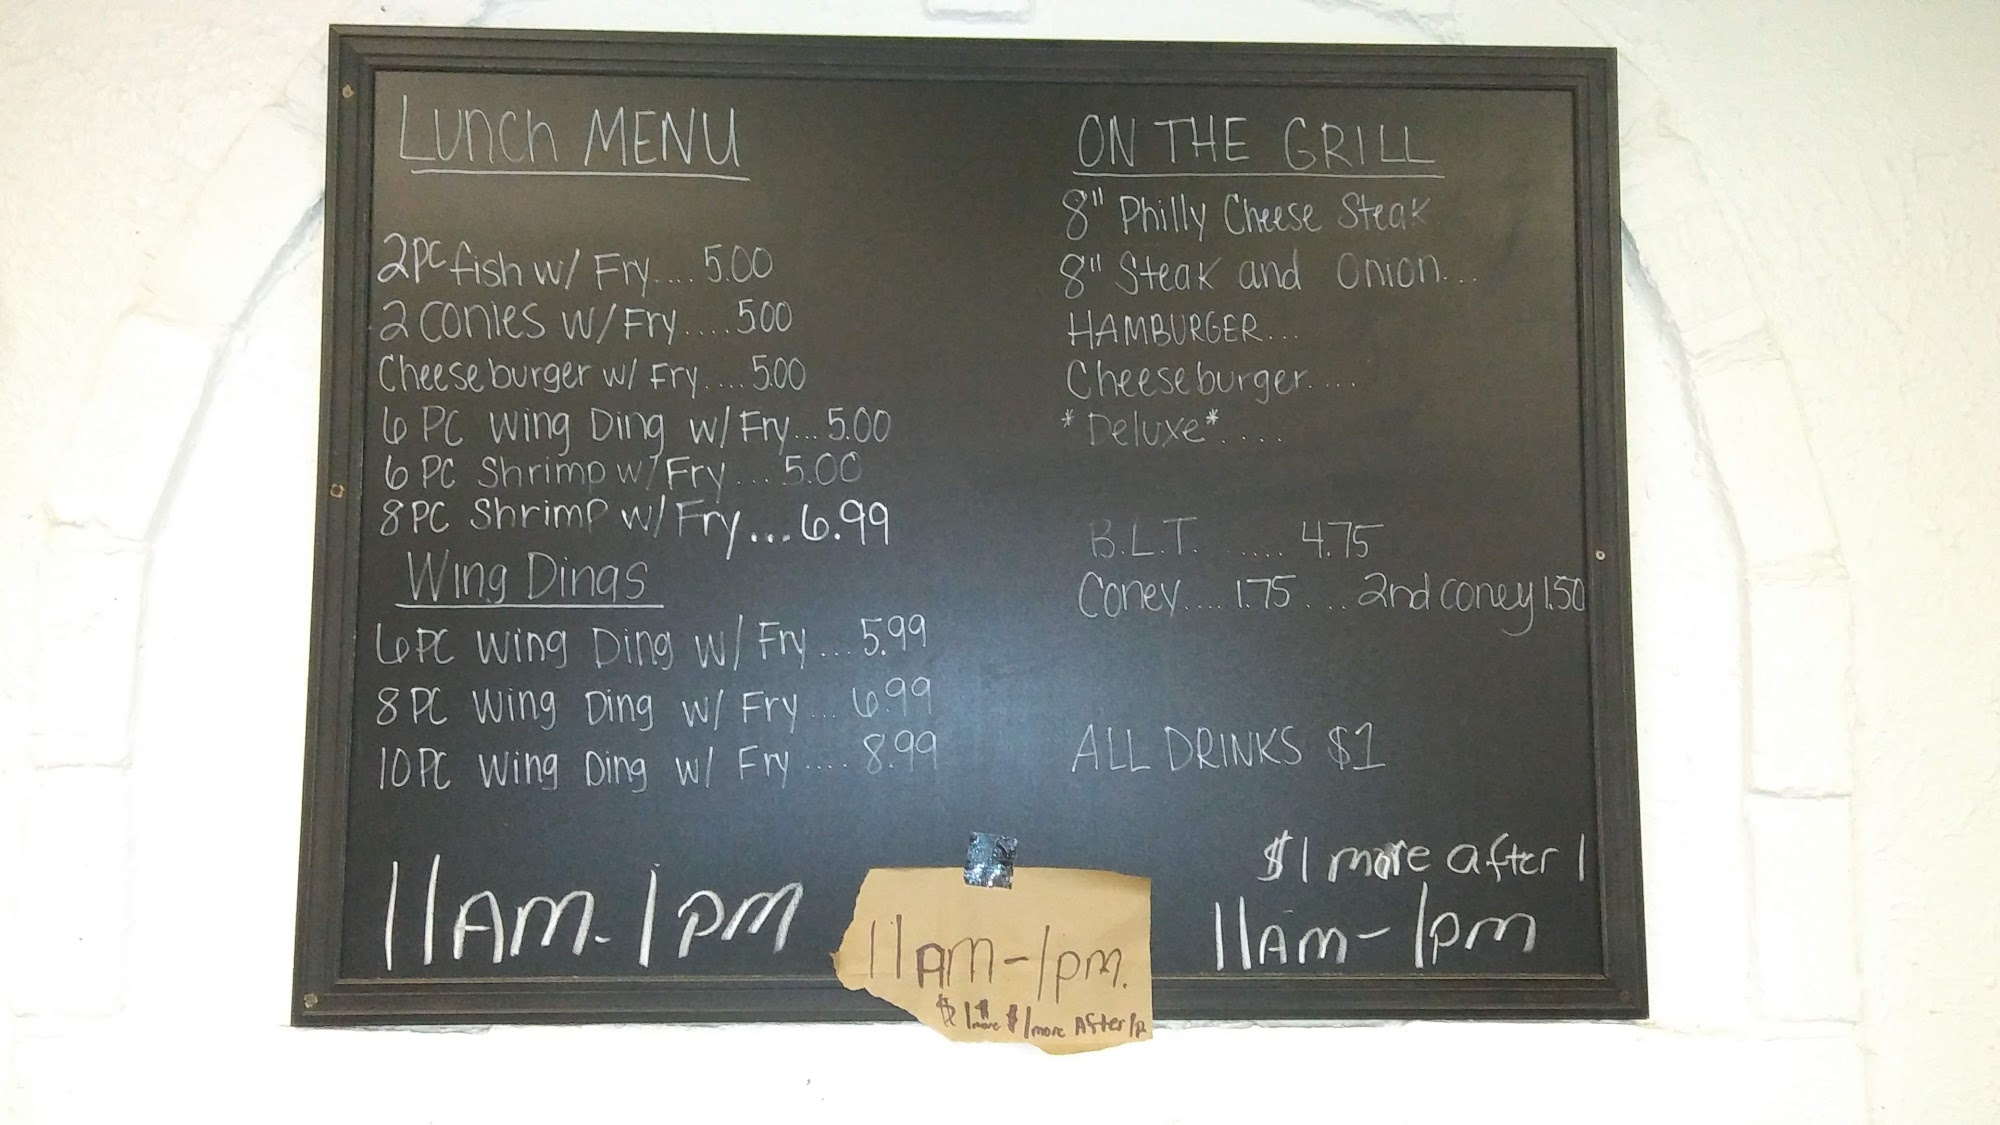 Lunch MENU
2PC fish w/ Fry.... 5.00
2 conies w/ Fry.....500
Cheeseburger w/ Fry....5.00
6 PC Wing Ding w/ Fry...5.00
6 PC Shrimp w/ Fry...5.00
8PC Shrimp w/ Fry....6.99
Wing Dings
6PC Wing Ding w/ Fry...5.99
8PC Wing Ding w/ Fry...6.99
10PC Wing Ding w/ Fry....8.99
11AM-1PM
ON THE GRILL
8" Philly Cheese Steak
8" Steak and Onion...
HAMBURGER...
Cheeseburger....
*Deluxe*....
B.L.T. .....4.75
Coney....1.75....2nd coney 1.50
ALL DRINKS $1
$1 more after 1
11AM-1pm
11AM-1pm.
$1 more After 1p